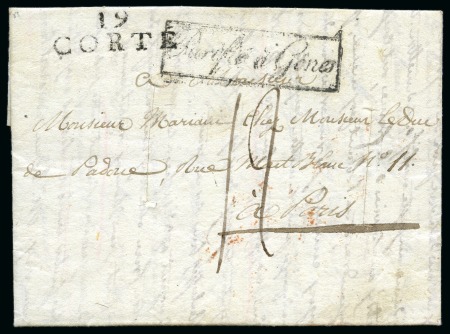 19
CORTE
Purifié à Gênes
a Monsieur
Monsieur Mariani chez Monsieur le Duc
de Padoue, Rue Mont Blanc N° 11.
à Paris